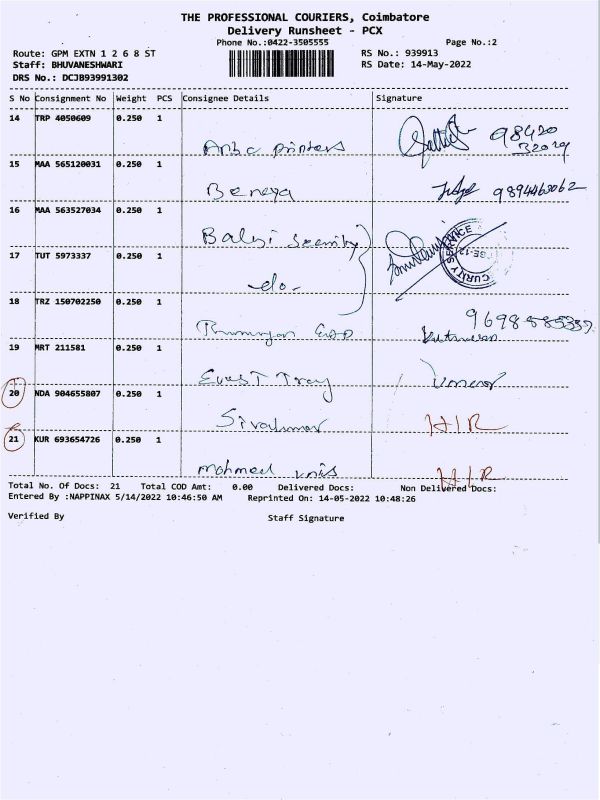 THE PROFESSIONAL COURIERS, Coimbatore
Delivery Runsheet - PCX
Phone No.:0422-3505555
Page No.:2
Route: GPM EXTN 1 2 6 8 ST
RS No.: 939913
Staff: BHUVANESHWARI
RS Date: 14-May-2022
DRS No.: DCJB93991302
S No Consignment No Weight PCS Consignee Details Signature
14 TRP 4050609 0.250 1
printers 98420
32029
15 MAA 565120031 0.250 1
Beneya 9894463062
16 MAA 563527034 0.250 1
Balaji Security
17 TUT 5973337 0.250 1
-do-
CURITY SERVICE
18 TRZ 150702250 0.250 1
19 MRT 211581 0.250 1
20 NDA 904655807 0.250 1
Sivakumar H/R
21 KUR 693654726 0.250 1
Mohmed H/R
Total No. Of Docs: 21 Total COD Amt: 0.00 Delivered Docs: Non Delivered Docs:
Entered By :NAPPINAX 5/14/2022 10:46:50 AM Reprinted On: 14-05-2022 10:48:26
Verified By Staff Signature